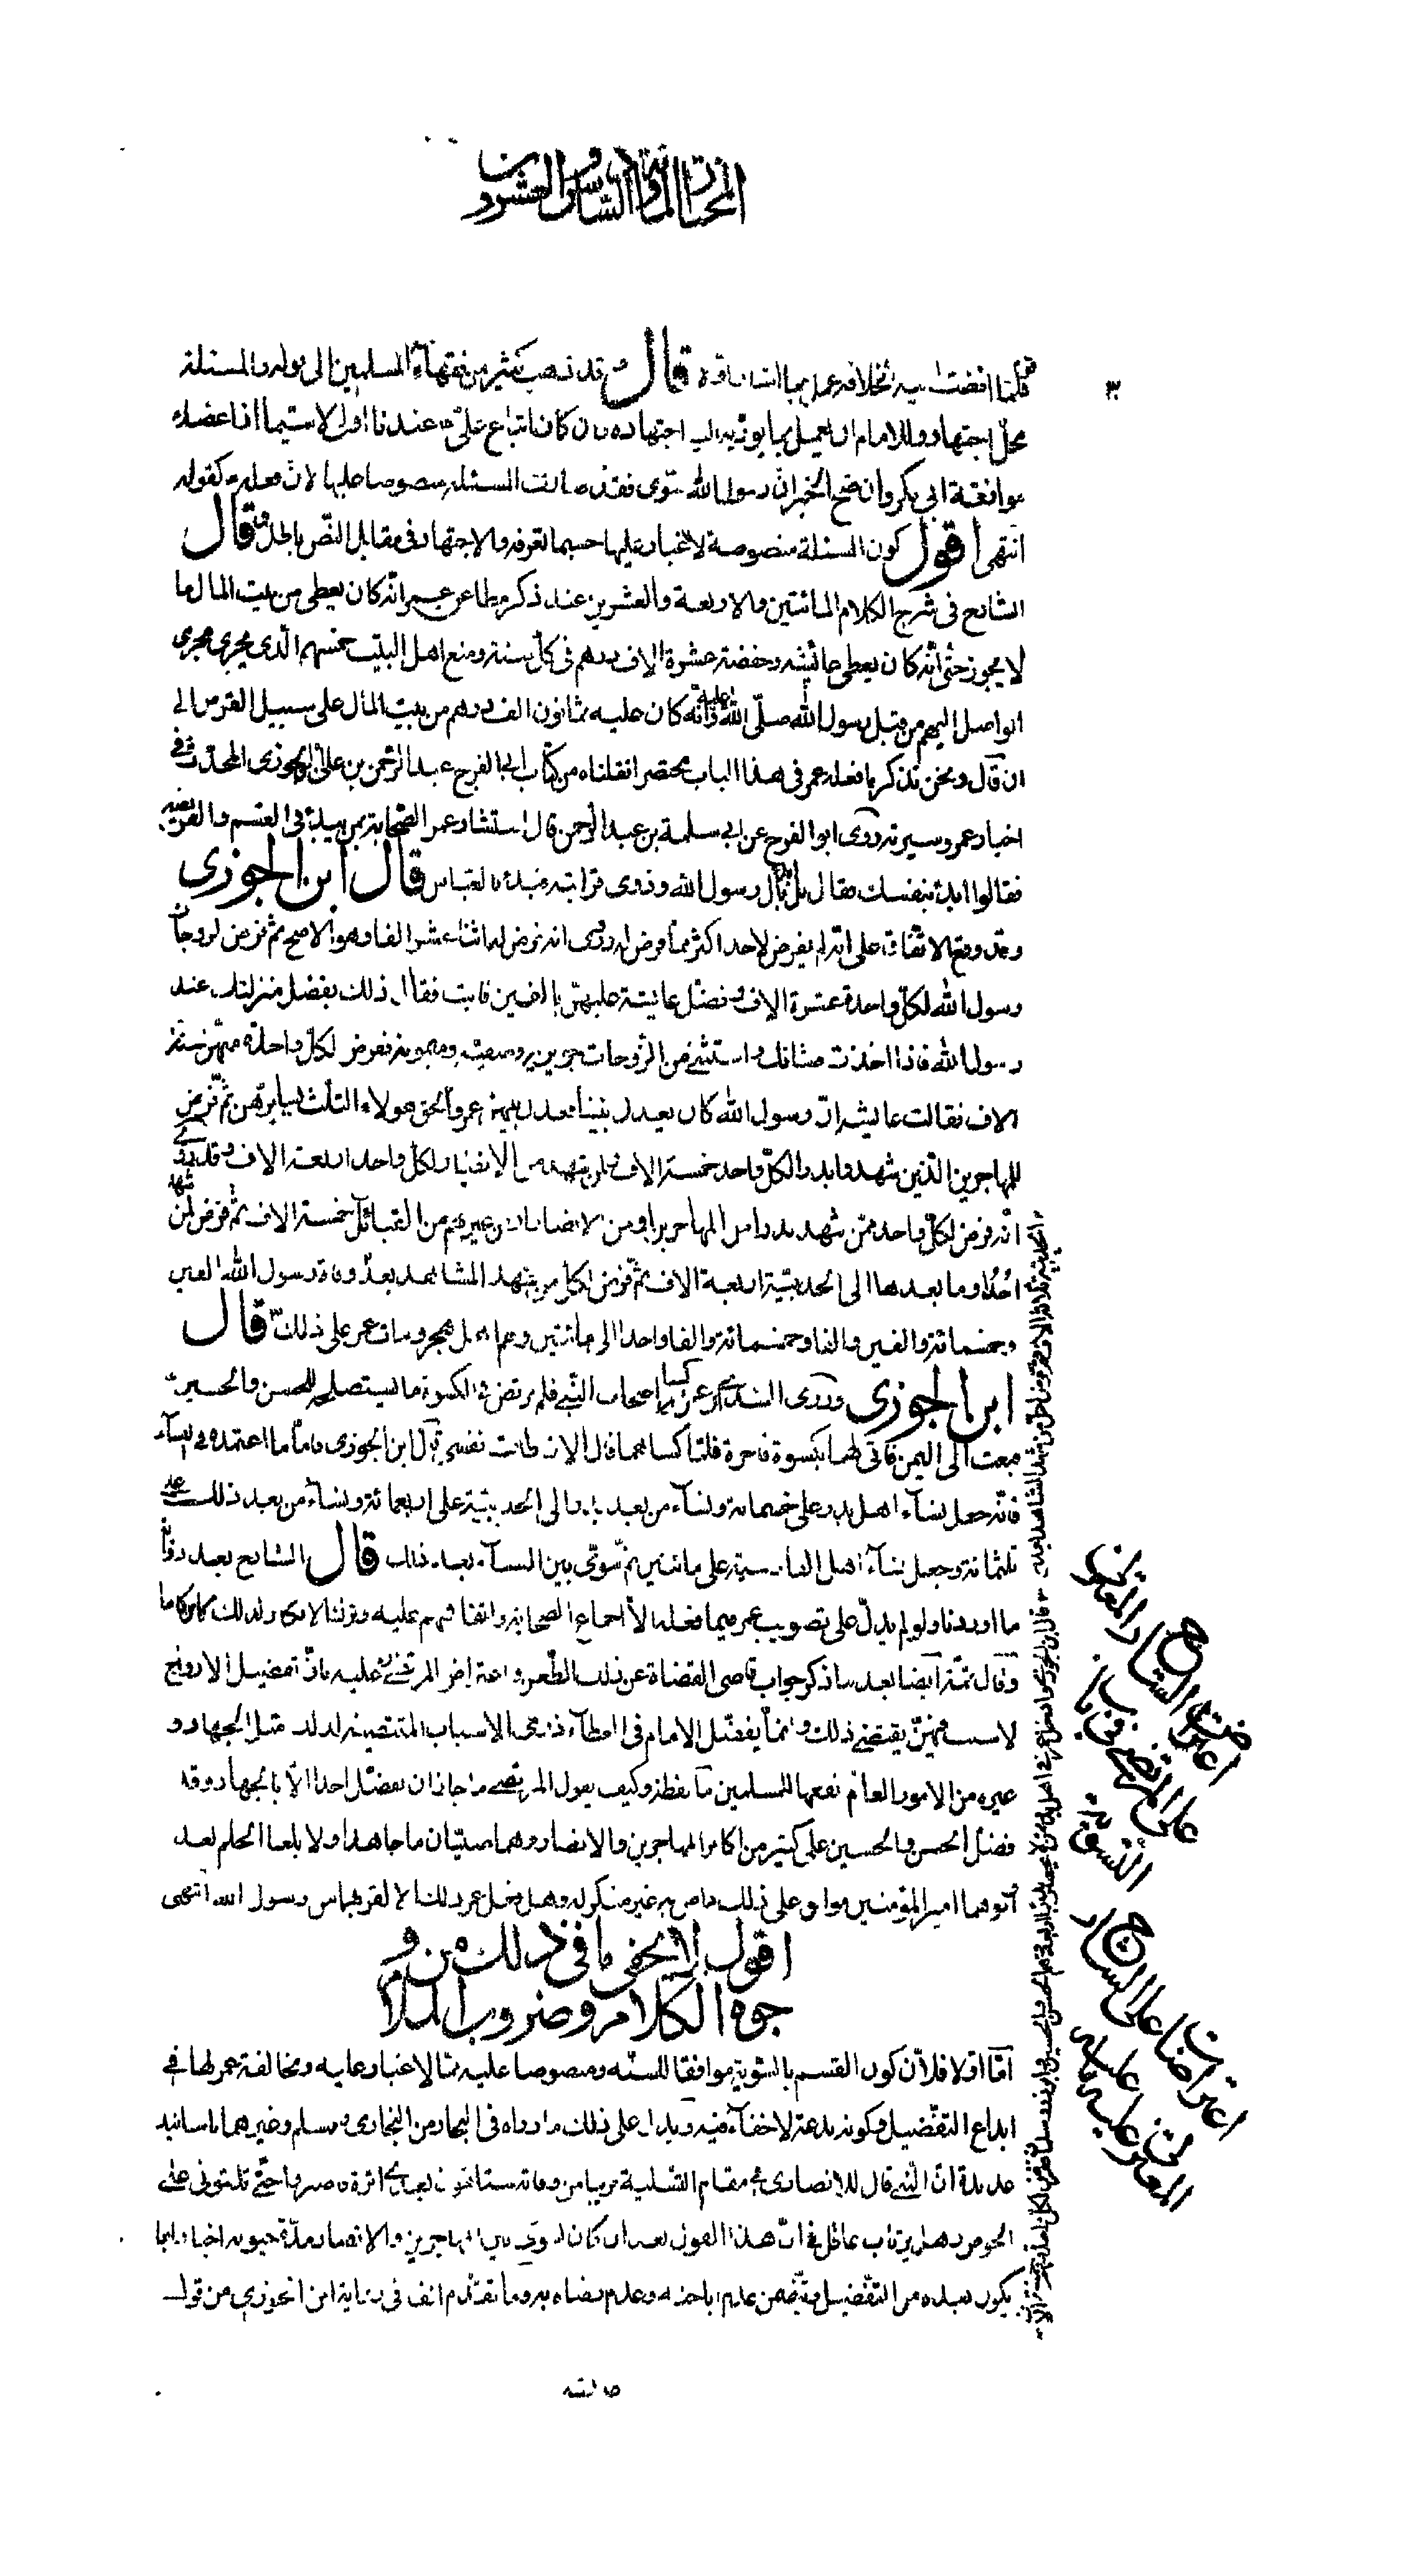 المختار المائة والسادس والعشرون
٣
فلما افضت اليه الخلافة عمل بها اشار اولا قال قد ذهب كثير من فقهاء المسلمين الى قوله والمسئلة
محل اجتهاد وللامام ان يعمل بما يؤديه اليه اجتهاده وان كان اتباع علي عندنا اولى لا سيما اذا عضده
موافقة ابي بكر وان صح الخبر ان رسول الله سوى فقد صارت المسئلة منصوصا عليها لان فعله كقوله
انتهى اقول كون المسئلة منصوصة لا غبار عليها حسبما تعرفه والاجتهاد في مقابل النص باطل وقال
الشارح في شرح الكلام المائتين والاربعة والعشرين عند ذكر مطاعن عمر انه كان يعطي من بيت المال ما
لا يجوز حتى انه كان يعطي عائشه وحفصة عشرة الاف درهم في كل سنة ومنع اهل البيت خمسهم الذي يجري مجرى
الواصل اليهم من قبل رسول الله صلى الله عليه وانه كان عليه ثمانون الف درهم من بيت المال على سبيل القرض الى
ان قال ونحن نذكر ما فعله عمر في هذا الباب مختصرا نقلناه من كتاب ابي الفرج عبد الرحمن بن علي بن الجوزي المحدث في
اخبار عمر وسيرته روى ابو الفرج عن ابي سلمة بن عبد الرحمن قال استشار عمر الصحابة بمن يبدء في القسم والفريضه
فقالوا ابدء بنفسك فقال بل ابدء بال رسول الله وذوي قرابته فبدء بالعباس قال ابن الجوزي
وقد وقع الاتفاق على انه لم يفرض لاحد اكثر مما فرض له وروى انه فرض له اثنا عشر الفا وهو الاصح ثم فرض لزوجات
رسول الله لكل واحدة عشرة الاف وفضل عايشة عليهن بالفين فابت فقال ذلك بفضل منزلتك عند
رسول الله فاذا اخذت فشانك واستثنى من الزوجات جويرية وصفية وميمونة ففرض لكل واحدة منهن ستة
الاف فقالت عايشة ان رسول الله كان يعدل بيننا فعدل بينهن عمر والحق هؤلاء الثلث بسايرهن ثم فرض
للمهاجرين الذين شهدوا بدرا لكل واحد خمسة الاف ولمن شهدها من الانصار لكل واحد اربعة الاف وقد روى
انه فرض لكل واحد ممن شهد بدرا من المهاجرين او من الانصار او من غيرهم من القبائل خمسة الاف ثم فرض لمن شهد
احدا وما بعدها الى الحديبية اربعة الاف ثم فرض لكل من شهد المشاهد بعد وفاة رسول الله الفين
وخمسمائة والفين والفا وخمسمائة والفا واحدا الى مائتين وهم اهل هجر ومات عمر على ذلك قال
ابن الجوزي وروى السدي ان عمر كسا اصحاب النبي فلم يرتض في الكسوة ما يستصلحه للحسن والحسين
فبعث الى اليمن فاتى لهما بكسوة فاخرة فلما كساهما قال الان طابت نفسي قال ابن الجوزي فاما ما اعتمده في النساء
فانه جعل نساء اهل بدر على خمسمائة ونساء من بعد بدر الى الحديبية على اربعمائة ونساء من بعد ذلك على
ثلثمائة وجعل نساء اهل القادسية على مائتين ثم سوى بين النساء بعد ذلك قال الشارح بعد رواية
ما اوردنا ولو لم يدل على تصويب عمر فيما فعله الا اجماع الصحابة واتفاقهم عليه وترك الانكار لذلك كان كافيا
وقال ثمة ايضا بعد ما ذكر جواب قاضى القضاة عن ذلك الطعن واعترض المرتضى عليه بان تفضيل الازواج
لا سبب فيهن يقتضي ذلك وانما يفضل الامام في العطاء ذوي الاسباب المقتضية لذلك مثل الجهاد و
غيره من الامور العام نفعها للمسلمين ما لفظه وكيف يقول المرتضى ما جاز ان يفضل احدا الا بالجهاد وقد
فضل الحسن والحسين على كثير من اكابر المهاجرين والانصار وهما صبيان ما جاهدا ولا بلغا الحلم بعد
وابوهما امير المؤمنين موافق على ذلك راض به غير منكر له وهل فعل عمر ذلك الا لقربهما من رسول الله انتهى
اقول لا يخفى ما في ذلك من و
جوه الكلام وضروب الملام
اما اولا فلان كون القسم بالسوية موافقا للسنة ومنصوصا عليه مما لا غبار عليه ومخالفة عمر لها في
ابداع التفضيل وكونه بدعة لا خفاء فيه ويدل على ذلك ما رواه في البحار من البخاري ومسلم وغيرهما باسانيد
عديدة ان النبي قال للانصار في مقام التسلية قريبا من وفاته ستلقون بعدي اثرة فاصبروا حتى تلقوني على
الحوض وهل يرتاب عاقل في ان هذا القول بعد ان كان يسوي بين المهاجرين والانصار مدة حيوته اخبار بما
يكون بعده من التفضيل ويتضمن عدم اباحته وعدم رضاه به وما تقدم انفا في رواية ابن الجوزي من قول
اعتراض الشارح المعتزلي
على المرتضى في باب
التسوية
اعتراضات على الشارح
المعتزلي عليه